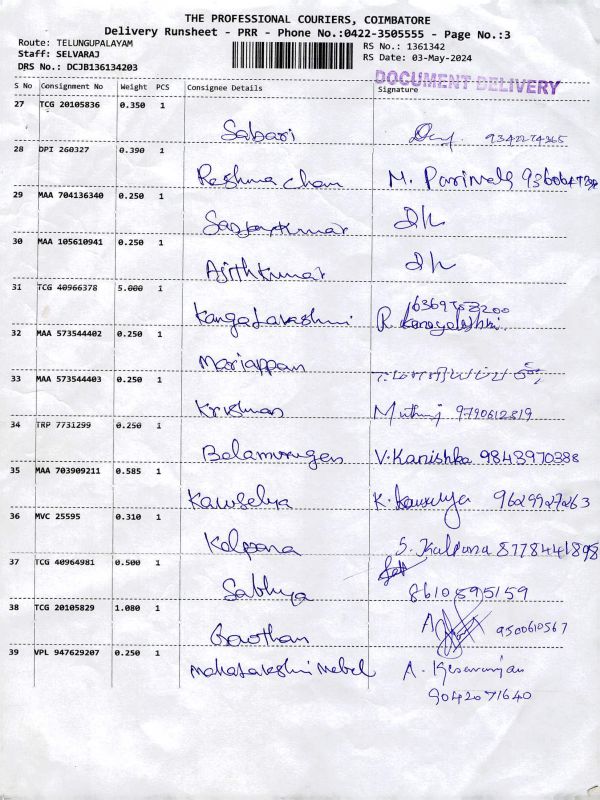 THE PROFESSIONAL COURIERS, COIMBATORE
Delivery Runsheet - PRR - Phone No.:0422-3505555 - Page No.:3
Route: TELUNGUPALAYAM
RS No.: 1361342
Staff: SELVARAJ
RS Date: 03-May-2024
DRS No.: DCJB136134203
DOCUMENT DELIVERY
S No Consignment No Weight PCS Consignee Details Signature
27 TCG 20105836 0.350 1
Sabari 9342274365
28 DPI 260327 0.390 1
Reshma chan M. Parimala
29 MAA 704136340 0.250 1
Sasjaykumar
30 MAA 105610941 0.250 1
Ajithkumar
31 TCG 40966378 5.000 1
KangaLakshmi R
32 MAA 573544402 0.250 1
Mariappan
33 MAA 573544403 0.250 1
Krishnan 9790612819
34 TRP 7731299 0.250 1
Balamurugan V.Kanishka 9843970388
35 MAA 703909211 0.585 1
Kawselya K. 9629927263
36 MVC 25595 0.310 1
Kalpana S. Kalpana 8778441898
37 TCG 40964981 0.500 1
Sabhya 8610595159
38 TCG 20105829 1.080 1
Gowthan 9500610567
39 VPL 947629207 0.250 1
Mahalakshmi Mebel A.
9042071640